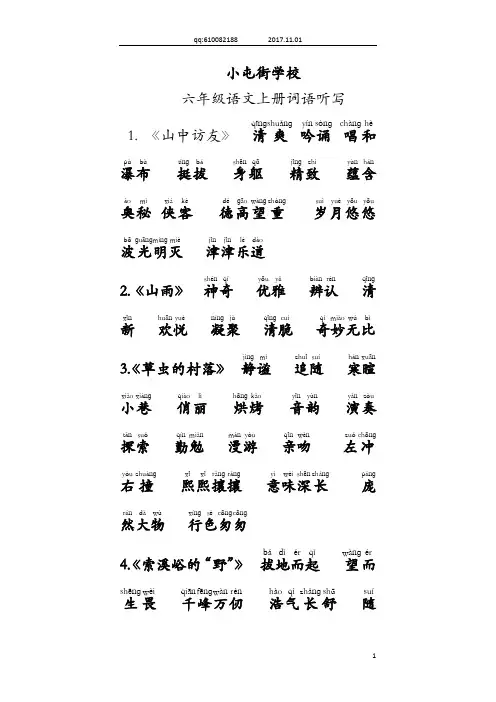 qq:610082188 2017.11.01
小屯街学校
六年级语文上册词语听写
qīngshuǎng yín sòng chàng hè
1. 《山中访友》 清爽 吟诵 唱和
pù bù tǐng bá shēn qū jīng zhì yùn hán
瀑布 挺拔 身躯 精致 蕴含
ào mì xiá kè dé gāo wàng zhòng suì yuè yōu yōu
奥秘 侠客 德高望重 岁月悠悠
bō guāngmíng miè jīn jīn lè dào
波光明灭 津津乐道
shén qí yōu yǎ biàn rèn qīng
2.《山雨》 神奇 优雅 辨认 清
xīn huān yuè níng jù qīng cuì qí miào wú bǐ
新 欢悦 凝聚 清脆 奇妙无比
jìng mì zhuī suí hán xuān
3.《草虫的村落》 静谧 追随 寒暄
xiǎo xiàng qiào lì hōng kǎo yīn yùn yǎn zòu
小巷 俏丽 烘烤 音韵 演奏
tàn suǒ qín miǎn màn yóu qīn wěn zuǒ chōng
探索 勤勉 漫游 亲吻 左冲
yòu zhuàng xī xī rǎng rǎng yì wèi shēn cháng páng
右撞 熙熙攘攘 意味深长 庞
rán dà wù xíng sè cōng cōng
然大物 行色匆匆
bá dì ér qǐ wàng ér
4.《索溪峪的“野”》 拔地而起 望而
shēng wèi qiān fēng wàn rèn hào qì cháng shū suí
生畏 千峰万仞 浩气长舒 随
1